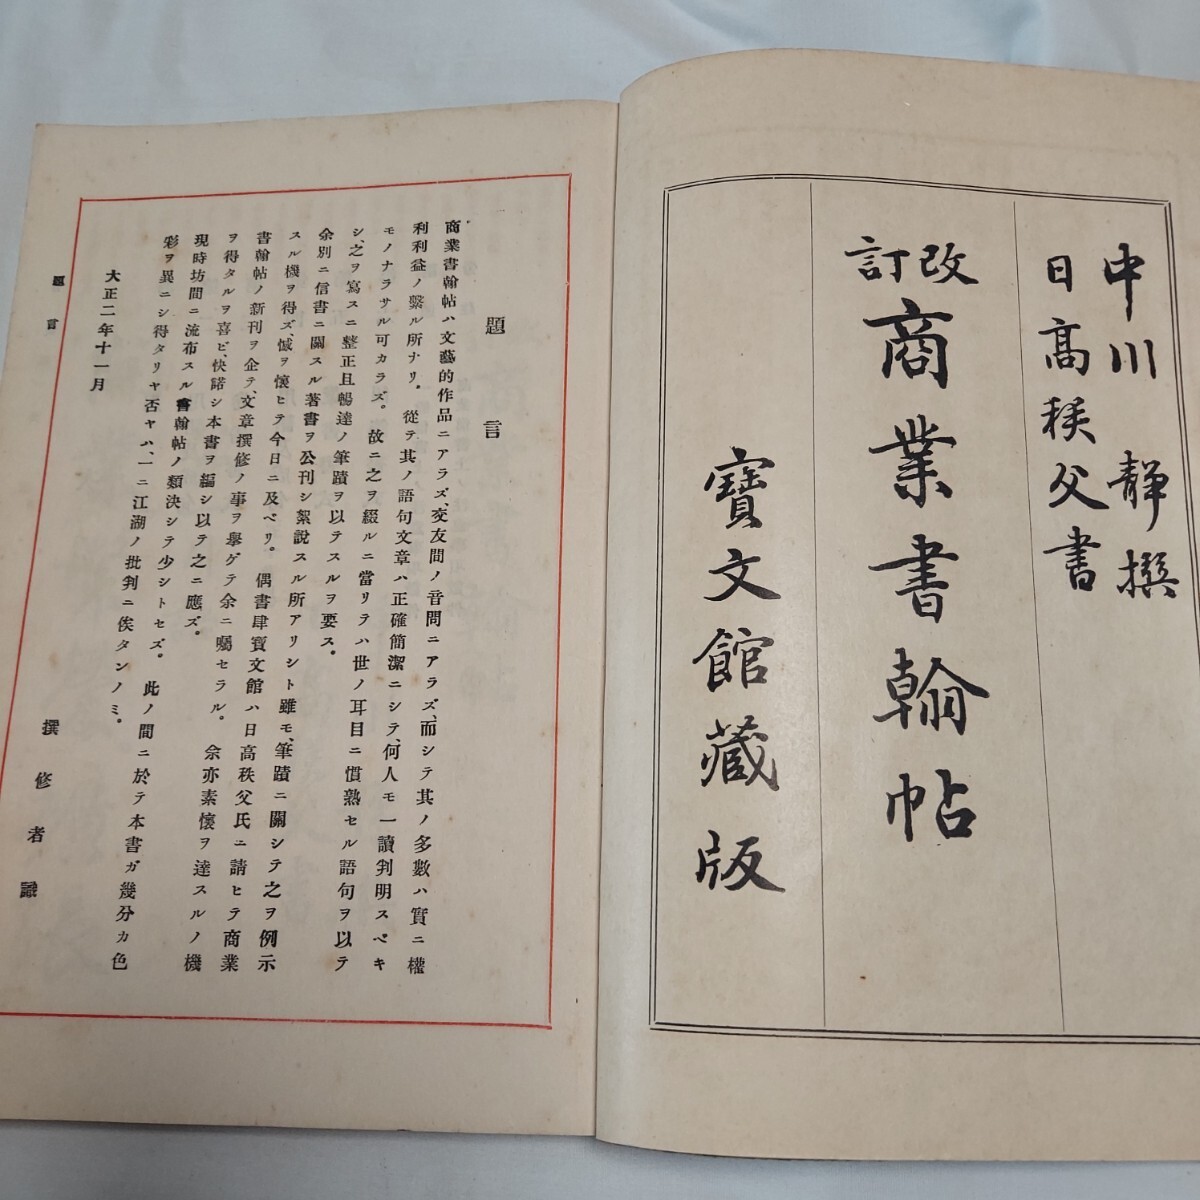 中川靜撰
日髙秩父書
改訂
商業書翰帖
寶文館藏版
題言
商業書翰帖ハ文藝的作品ニアラズ、交友間ノ音問ニアラズ、而シテ其ノ多數ハ實ニ權
利利益ノ繫ル所ナリ。從テ其ノ語句文章ハ正確簡潔ニシテ、何人モ一讀判明スベキ
モノナラサル可カラズ。故ニ之ヲ綴ルニ當リテハ世ノ耳目ニ慣熟セル語句ヲ以テ
シ、之ヲ寫スニ整正且暢達ノ筆蹟ヲ以テスルヲ要ス。
余別ニ信書ニ關スル著書ヲ公刊シ絮說スル所アリシト雖モ、筆蹟ニ關シテ之ヲ例示
スル機ヲ得ズ、憾ヲ懷ヒテ今日ニ及ベリ。偶書肆寶文館ハ日高秩父氏ニ請ヒテ商業
書翰帖ノ新刊ヲ企テ、文章撰修ノ事ヲ擧ゲテ余ニ囑セラル。余亦素懷ヲ達スルノ機
ヲ得タルヲ喜ビ、快諾シ本書ヲ編シ以テ之ニ應ズ。
現時坊間ニ流布スル書翰帖ノ類決シテ少シトセズ。此ノ間ニ於テ本書ガ幾分カ色
彩ヲ異ニシ得タリヤ否ヤハ、一ニ江湖ノ批判ニ俟タンノミ。
大正二年十一月
撰修者識
題言